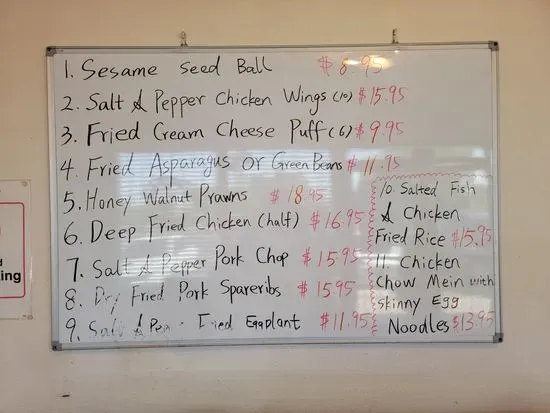 1. Sesame Seed Ball $8.95
2. Salt & Pepper Chicken Wings (10) $15.95
3. Fried Cream Cheese Puff (6) $9.95
4. Fried Asparagus or Green Beans $11.95
5. Honey Walnut Prawns $18.95
6. Deep Fried Chicken (half) $16.95
7. Salt & Pepper Pork Chop $15.95
8. Dry Fried Pork Spareribs $15.95
9. Salt & Fried Eggplant $11.95
10. Salted Fish
& Chicken
Fried Rice $15.95
11. Chicken
Chow Mein with
Skinny Egg
Noodles $13.95
king